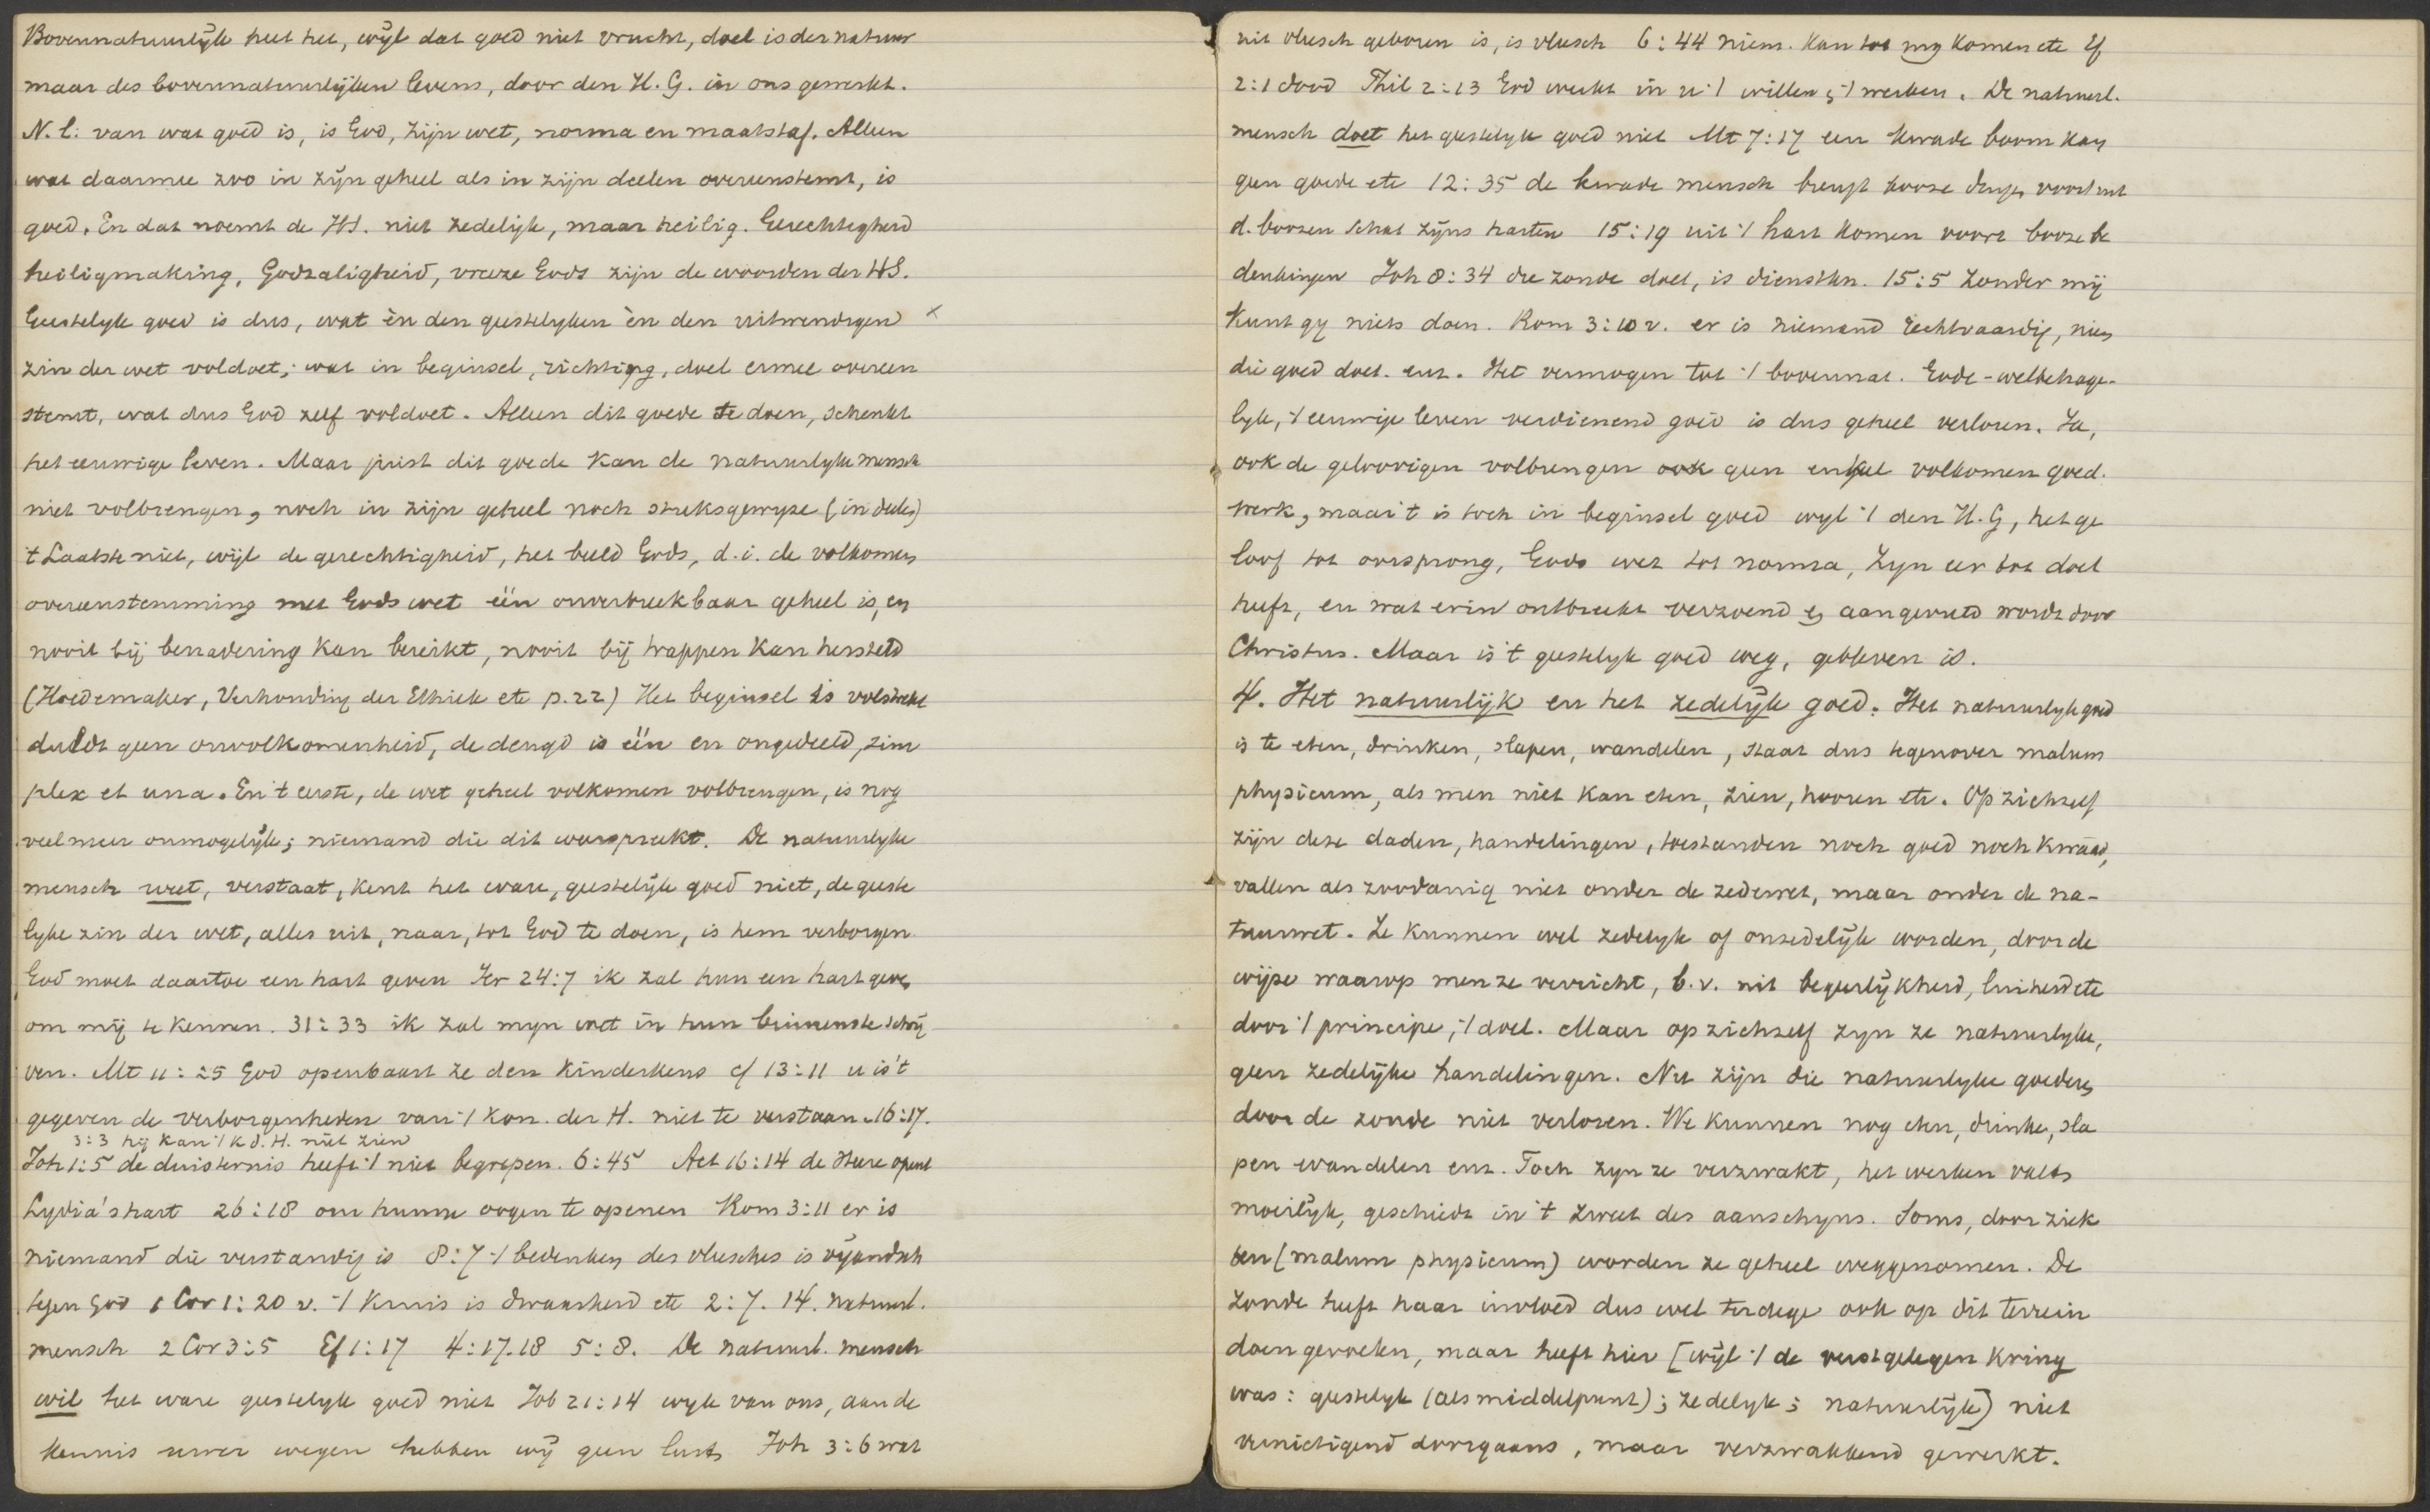 Bovennatuurlijk heet het, wijl dat goed niet vrucht, doel is der natuur
maar des bovennatuurlijken levens, door den H. G. in ons gewerkt.
N.l: van wat goed is, is God, zijn wet, norma en maatstaf. Alleen
wat daarmee zoo in zijn geheel als in zijn deelen overeenstemt, is
goed. En dat noemt de HS. niet zedelijk, maar heilig. Gerechtigheid
heiligmaking, Godzaligheid, vreeze Gods zijn de woorden der HS.
Geestelijk goed is dus, wat èn den geestelyken èn den uitwendigen x
zin der wet voldoet; wat in beginsel, richting, doel ermee overeen
stemt, wat dus God zelf voldoet. Alleen dit goede te doen, schenkt
het eeuwige leven. Maar juist dit goede kan de natuurlyke mensch
niet volbrengen, noch in zijn geheel noch stuksgewyze (in deelen)
't Laatste niet, wijl de gerechtigheid, het beeld Gods, d.i. de volkomen
overeenstemming met Gods wet één onverbreekbaar geheel is, en
nooit bij benadering kan bereikt, nooit bij trappen kan hersteld
(Hoedemaker, Verhouding der Ethiek etc p. 22) Het beginsel is volstrekt
duldt geen onvolkomenheid, de deugd is één en ongedeeld, sim
plex et una. En 't eerste, de wet geheel volkomen volbrengen, is nog
veel meer onmogelijk; niemand die dit weerspreekt. De natuurlyke
mensch weet, verstaat, kent het ware, geestelijk goed niet, de geeste
lyke zin der wet, alles uit, naar, tot God te doen, is hem verborgen
God moet daartoe een hart geven Jer 24:7 ik zal hun een hart geven
om mij te kennen. 31:33 ik zal myn wet in hun binnenste schrij
ven. Mt 11:25 God openbaart ze den Kinderkens cf 13:11 u is 't
gegeven de verborgenheden van 't Kon. der H. niet te verstaan. 16:17.
3:3 hij kan 't K.d.H. niet zien
Joh 1:5 de duisternis heeft 't niet begrepen. 6:45 Act 16:14 de Heere opent
Lydia's hart 26:18 om hunne oogen te openen Rom 3:11 er is
niemand die verstandig is 8:7 't bedenken des vleesches is vijandsch
tegen God 1 Cor 1:20 v. 't Kruis is dwaasheid etc 2:7. 14. natuurl.
mensch 2 Cor 3:5 Ef 1:17 4:17.18 5:8. De natuurl. mensch
wil het ware geestelyk goed niet Job 21:14 wyk van ons, aan de
kennis uwer wegen hebben wij geen lust, Joh 3:6 wat
uit vleesch geboren is, is vleesch 6:44 niem. kan tot my komen etc Ef
2:1 dood Phil 2:13 God werkt in u 't willen en 't werken. De natuurl.
mensch doet het geestelyk goed niet Mt 7:17 een kwade boom kan
geen goede etc 12:35 de kwade mensch brengt booze dingen voort uit
d. boozen schat zijns harten 15:19 uit 't hart komen voort booze be
denkingen Joh 8:34 die zonde doet, is dienstkn. 15:5 Zonder mij
kunt gy niets doen. Rom 3:10 v. er is niemand rechtvaardig, niem
die goed doet. enz. Het vermogen tot 't bovennat. Gode-welbehage-
lyk, 't eeuwige leven verdienend goed is dus geheel verloren. Ja,
ook de geloovigen volbrengen ook geen enkel volkomen goed.
werk, maar 't is toch in beginsel goed wyl 't den H. G, het ge
loof tot oorsprong, Gods wet tot norma, Zyn eer tot doel
heeft, en wat erin ontbreekt verzoend en aangevuld wordt door
Christus. Maar is 't geestelyk goed weg, gebleven is.
4. Het natuurlijk en het zedelijk goed. Het natuurlyk goed
is te eten, drinken, slapen, wandelen, staat dus tegenover malum
physicum, als men niet kan eten, zien, hooren etc. Op zichzelf
zijn deze daden, handelingen, toestanden noch goed noch kwaad,
vallen als zoodanig niet onder de zedewet, maar onder de na-
tuurwet. Ze kunnen wel zedelyk of onzedelijk worden, door de
wijze waarop men ze verricht, b.v. uit begeerlijkheid, luiheid etc
door 't principe, 't doel. Maar op zichzelf zyn ze natuurlyke,
geen zedelijke handelingen. Nu zijn die natuurlyke goederen
door de zonde niet verloren. We kunnen nog eten, drinken, sla
pen wandelen enz. Toch zyn ze verzwakt, het werken valt
moeilijk, geschiedt in 't zweet des aanschyns. Soms, door ziek
ten (malum physicum) worden ze geheel weggenomen. De
zonde heeft haar invloed dus wel terdege ook op dit terrein
doen gevoelen, maar heeft hier [wijl 't de verstgelegen kring
was: geestelyk (als middelpunt); zedelyk; natuurlijk) niet
vernietigend doorgaans, maar verzwakkend gewerkt.